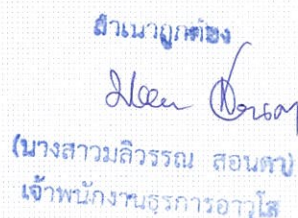 สำเนาถูกต้อง
(นางสาวมลิวรรณ สอนดา)
เจ้าพนักงานธุรการอาวุโส